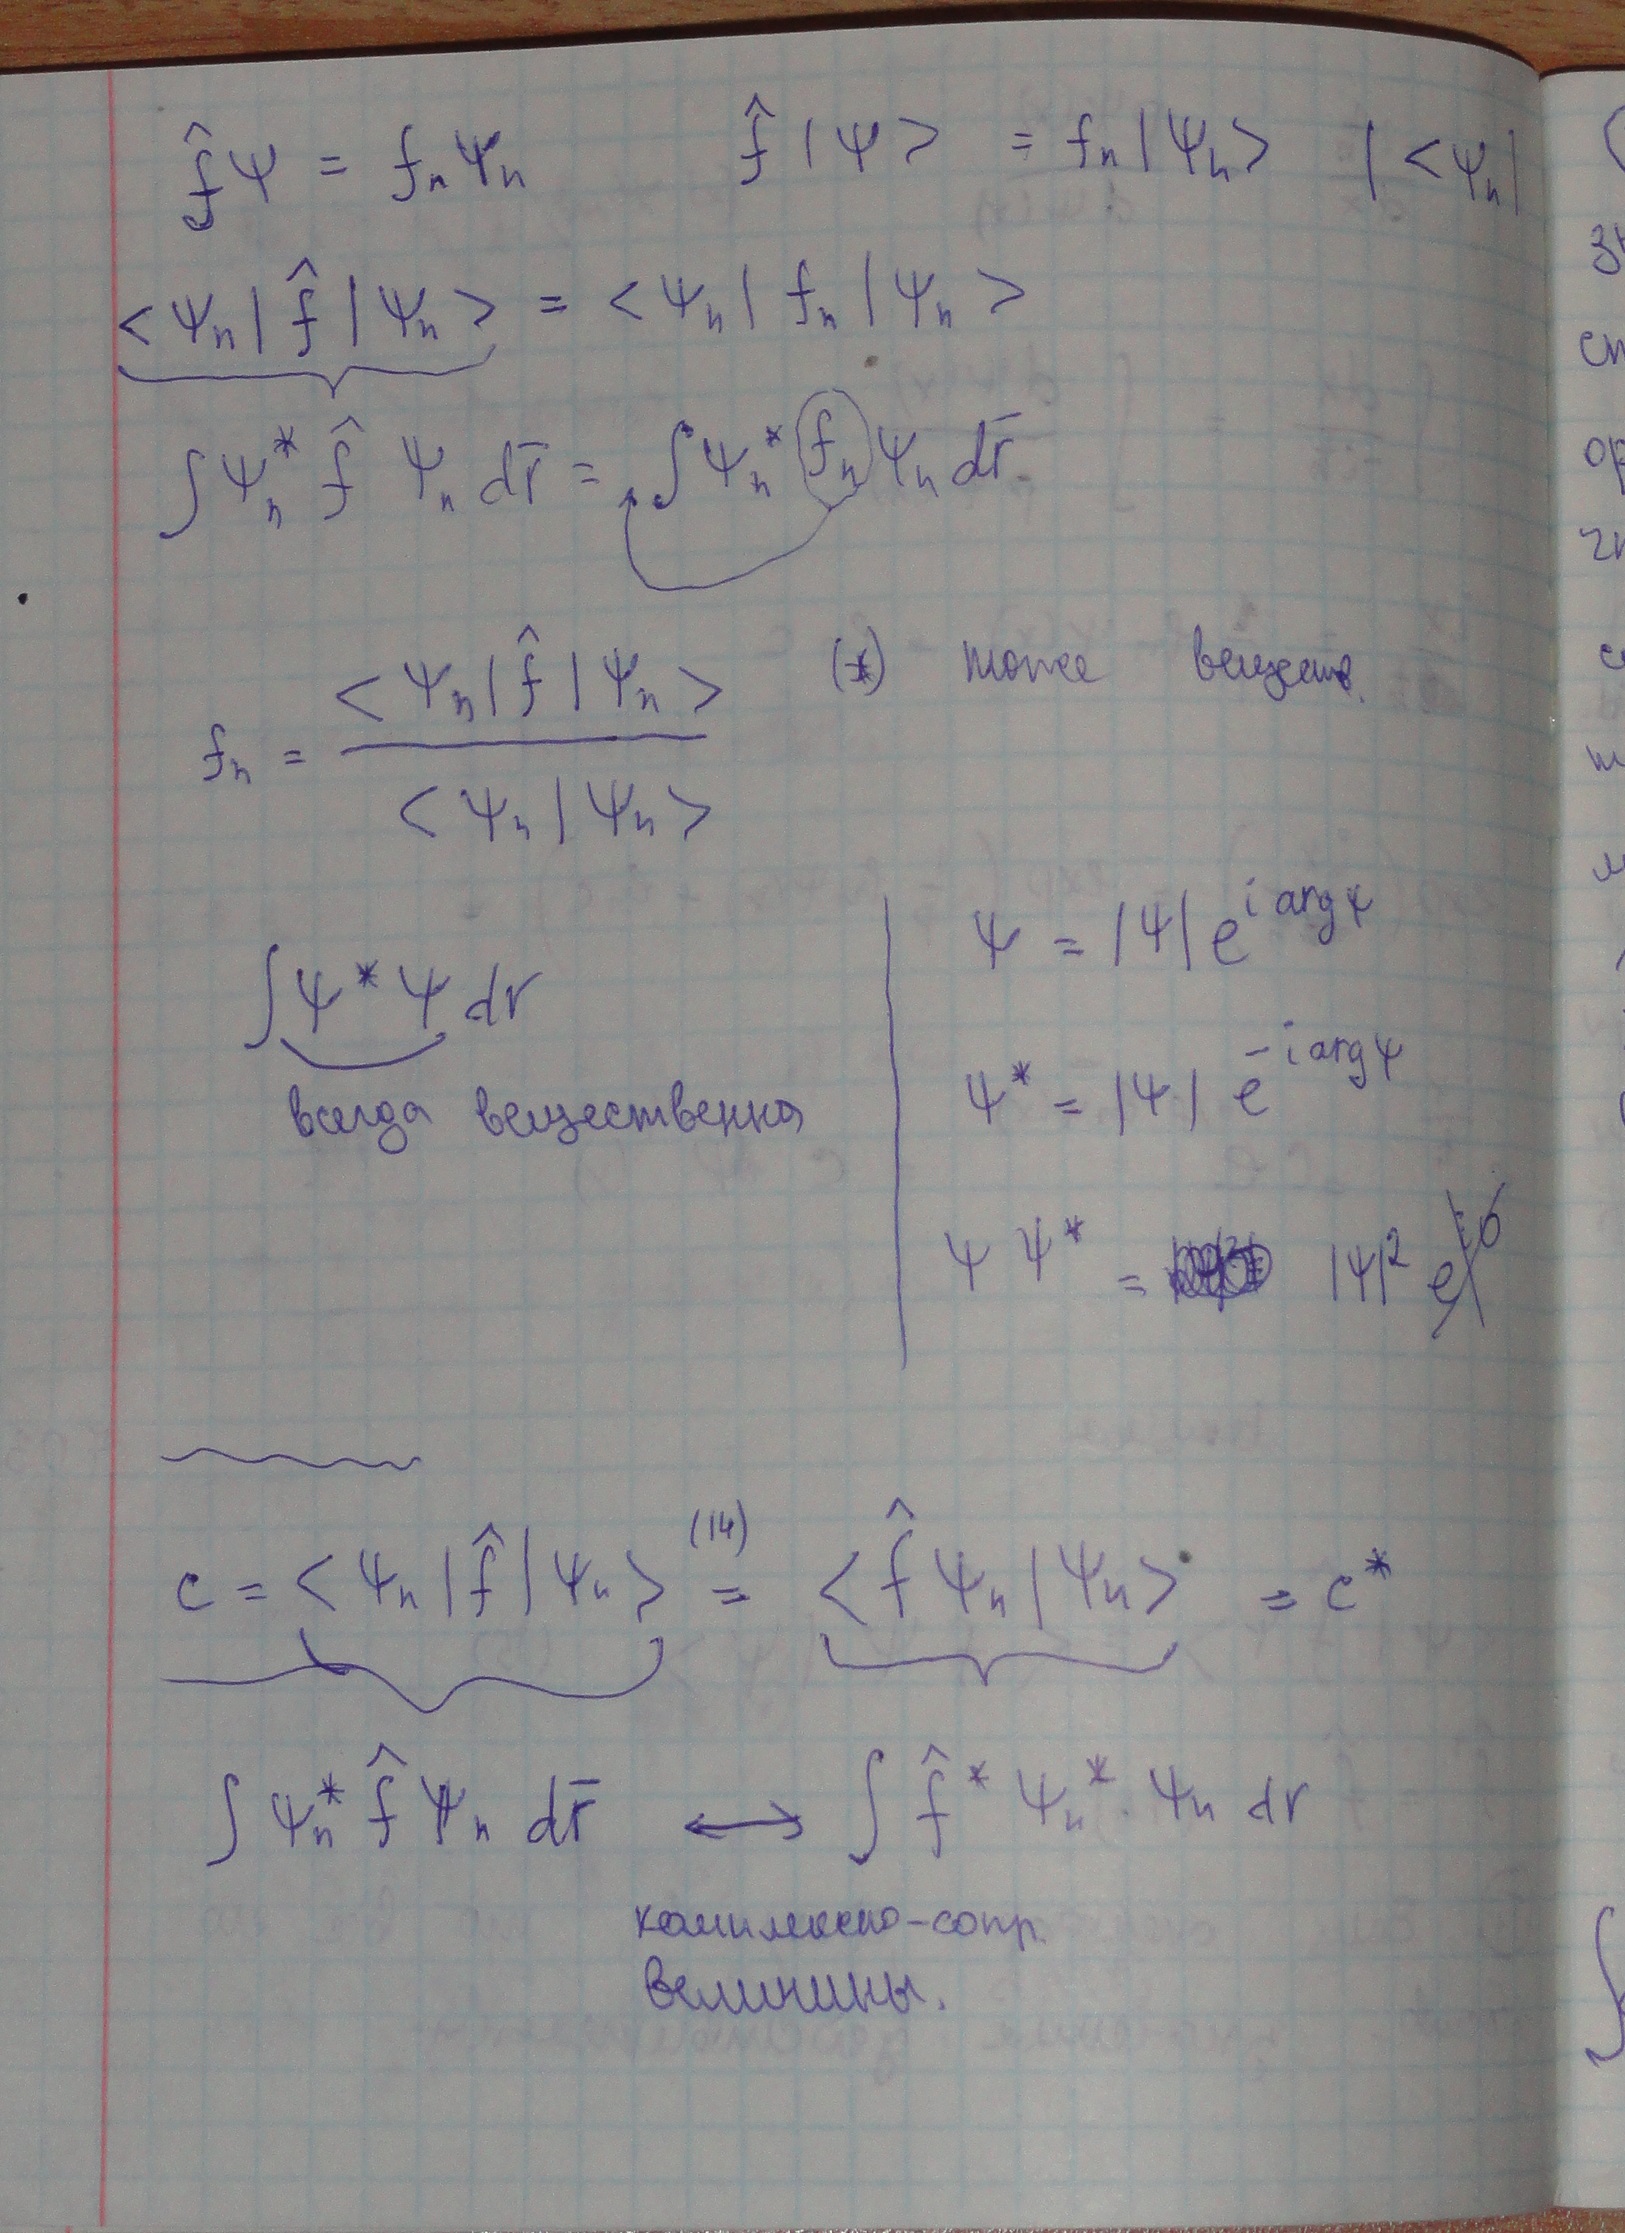 f̂ Ψ = fₙ Ψₙ    f̂ |Ψ> = fₙ |Ψₙ>    | <Ψₙ|
<Ψₙ| f̂ |Ψₙ> = <Ψₙ| fₙ |Ψₙ>
∫ Ψₙ* f̂ Ψₙ dr̄ = ∫ Ψₙ* fₙ Ψₙ dr̄
fₙ = <Ψₙ| f̂ |Ψₙ> / <Ψₙ|Ψₙ>    (*) тоже веществ.
∫ Ψ* Ψ dr
всегда вещественна
Ψ = |Ψ| e^{i arg Ψ}
Ψ* = |Ψ| e^{-i arg Ψ}
Ψ Ψ* = |Ψ|² e^{i0}
c = <Ψₙ| f̂ |Ψₙ> (14) = <f̂ Ψₙ|Ψₙ> = c*
∫ Ψₙ* f̂ Ψₙ dr̄ ↔ ∫ f̂* Ψₙ* · Ψₙ dr
комплексно-сопр.
величины.